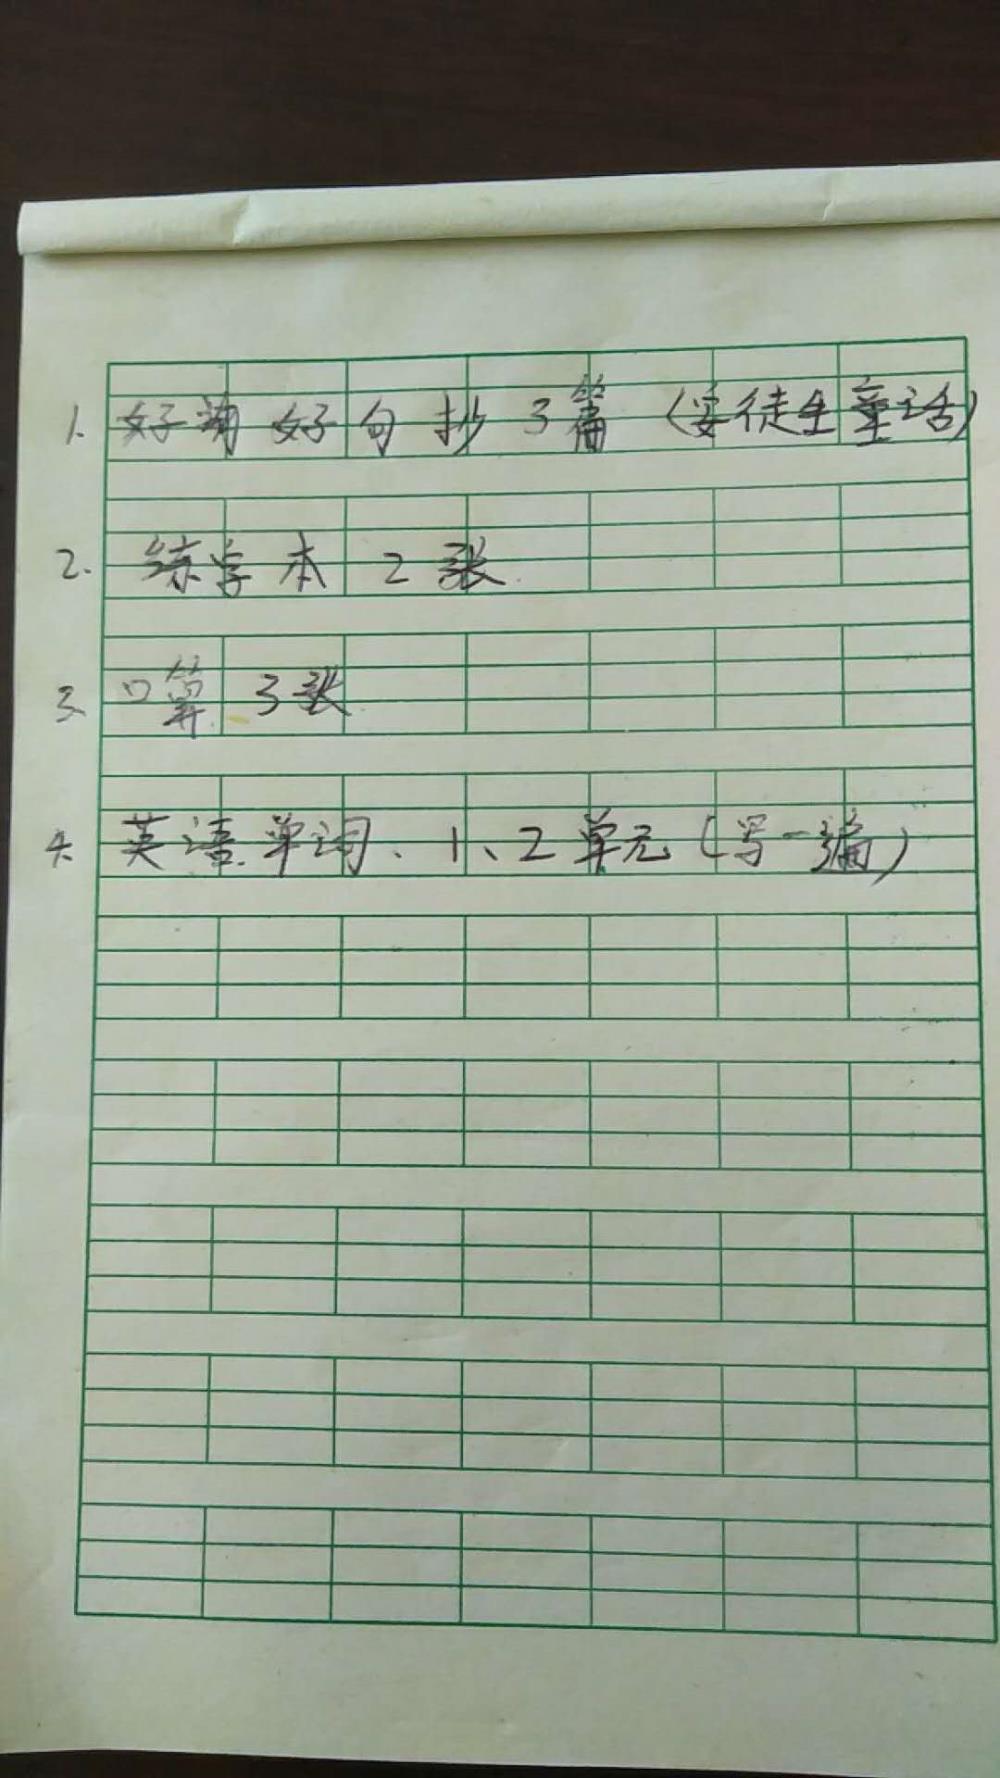 1. 好词好句抄3篇（安徒生童话）
2. 练字本2张.
3. 口算3张
4. 英语单词、1、2单元（写一遍）